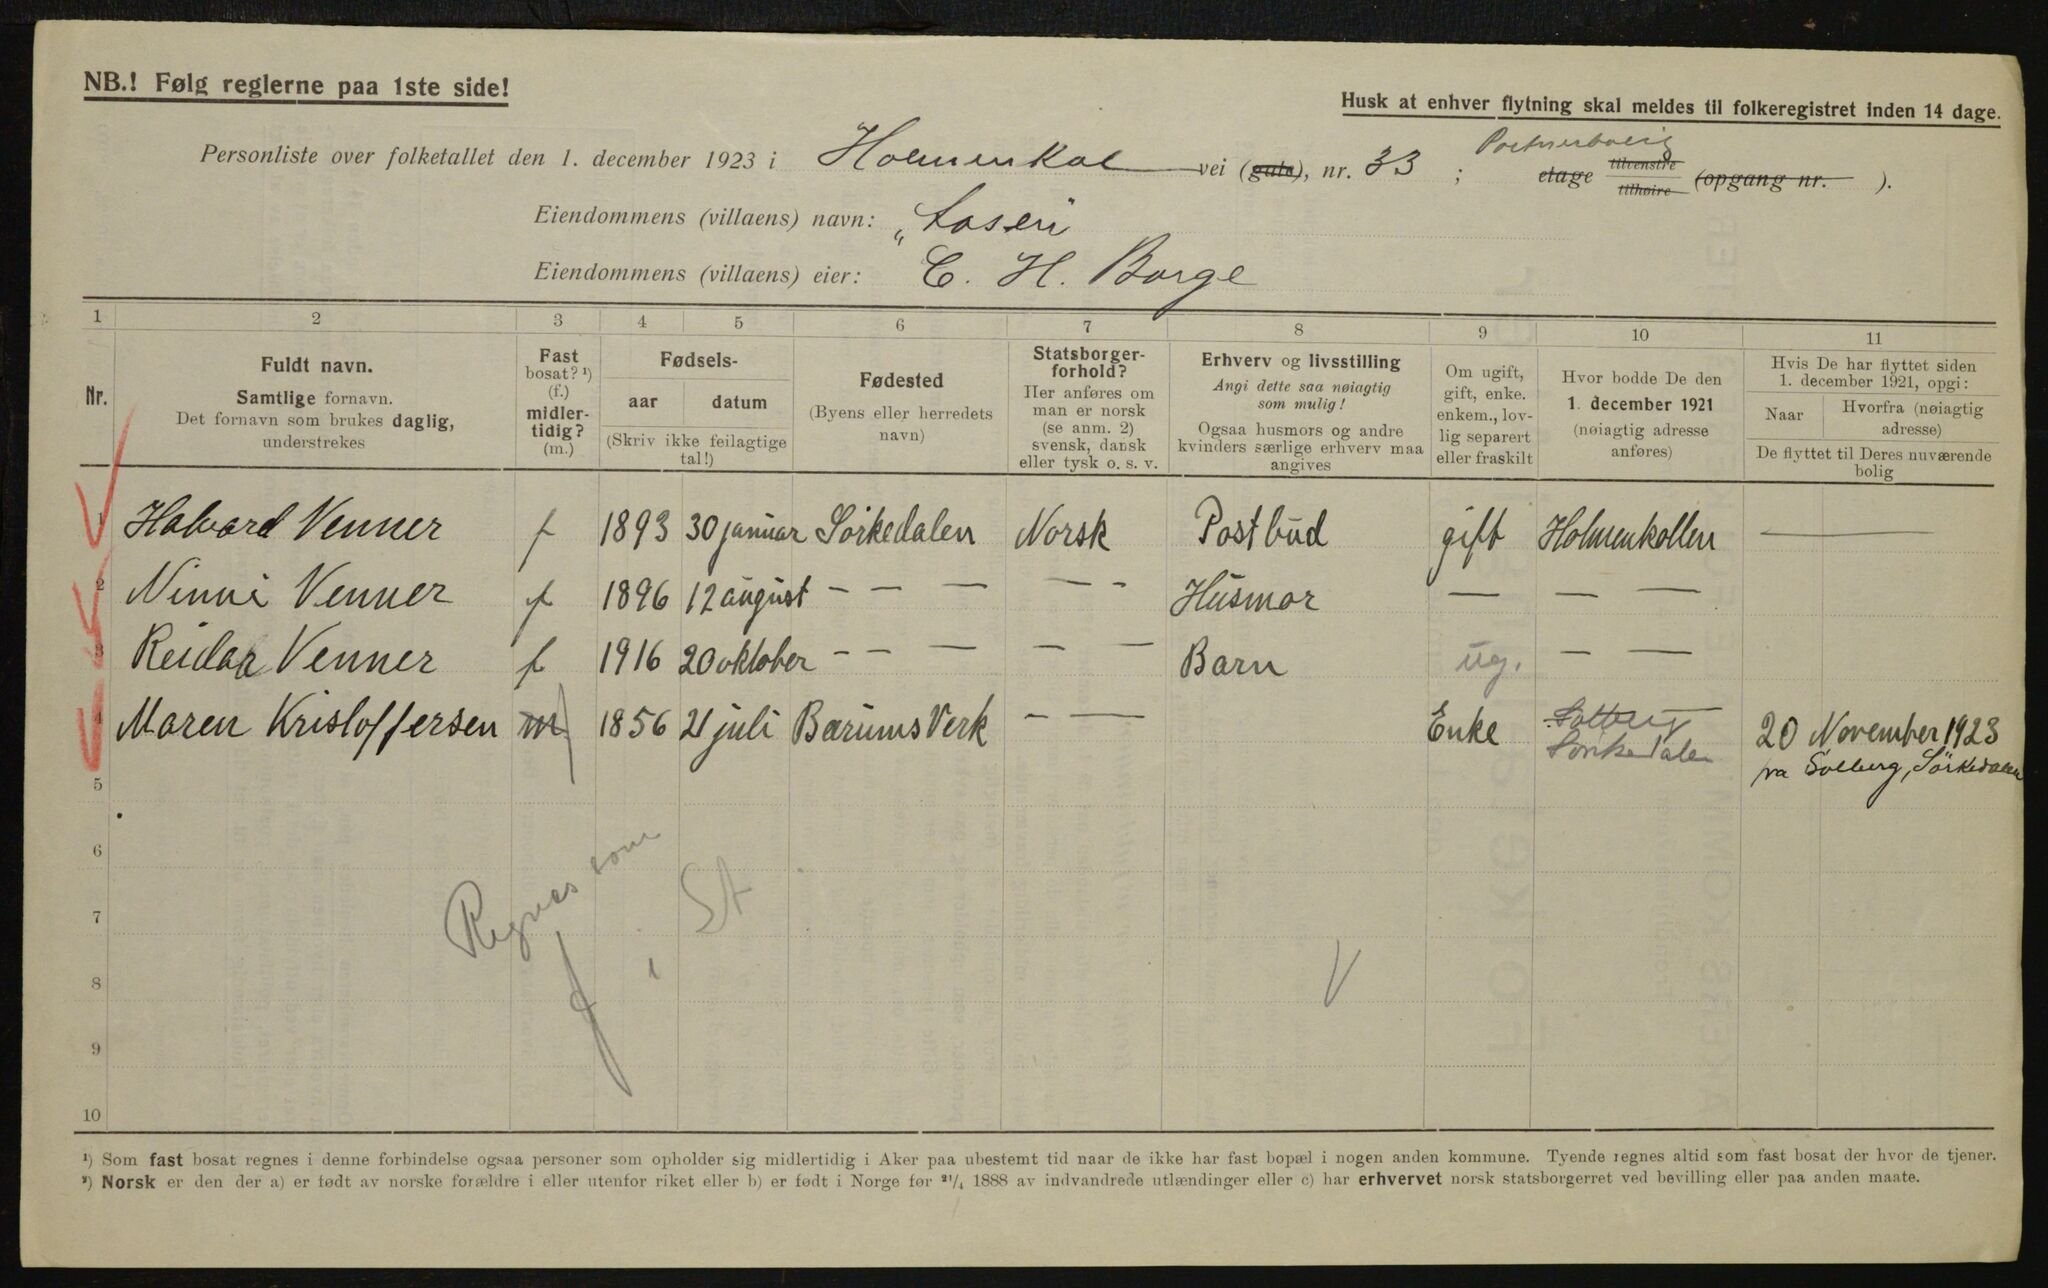 NB.! Følg reglerne paa 1ste side!
Husk at enhver flytning skal meldes til folkeregistret inden 14 dage.
Personliste over folketallet den 1. december 1923 i Holmenkol vei (gata), nr. 33 ; etage tilvenstre tilhøire (opgang nr. ).
Eiendommens (villaens) navn:
Eiendommens (villaens) eier: C. H. Borge
1 2 3 4 5 6 7 8 9 10 11
Nr.
Fuldt navn.
Samtlige fornavn.
Det fornavn som brukes daglig,
understrekes
Fast
bosat? ¹)
(f.)
midler-
tidig?
(m.)
Fødsels-
aar datum
(Skriv ikke feilagtige
tal!)
Fødested
(Byens eller herredets
navn)
Statsborger-
forhold?
Her anføres om
man er norsk
(se anm. 2)
svensk, dansk
eller tysk o. s. v.
Erhverv og livsstilling
Angi dette saa nøiagtig
som mulig!
Ogsaa husmors og andre
kvinders særlige erhverv maa
angives
Om ugift,
gift, enke.
enkem., lov-
lig separert
eller fraskilt
Hvor bodde De den
1. december 1921
(nøiagtig adresse
anføres)
Hvis De har flyttet siden
1. december 1921, opgi:
Naar
Hvorfra (nøiagtig
adresse)
De flyttet til Deres nuværende
bolig
1 Halvard Venner f 1893 30 januar Sörkedalen Norsk Postbud gift Holmenkollen —
2 Ninni Venner f 1896 12 august — — — — - Husmor — — —
3 Reidar Venner f 1916 20 oktober — — — — — Barn ug. — —
4 Maren Kristoffersen m f 1856 21 juli Bærums Verk — — Enke Solberg Sørkedalen 20 November 1923
fra Solberg, Sörkedalen
5
6
7
8
9
10
Regnes som
f i St
V
¹) Som fast bosat regnes i denne forbindelse ogsaa personer som opholder sig midlertidig i Aker paa ubestemt tid naar de ikke har fast bopæl i nogen anden kommune. Tyende regnes altid som fast bosat der hvor de tjener.
²) Norsk er den der a) er født av norske forældre i eller utenfor riket eller b) er født i Norge før ²¹/₄ 1888 av indvandrede utlændinger eller c) har erhvervet norsk statsborgerret ved bevilling eller paa anden maate.